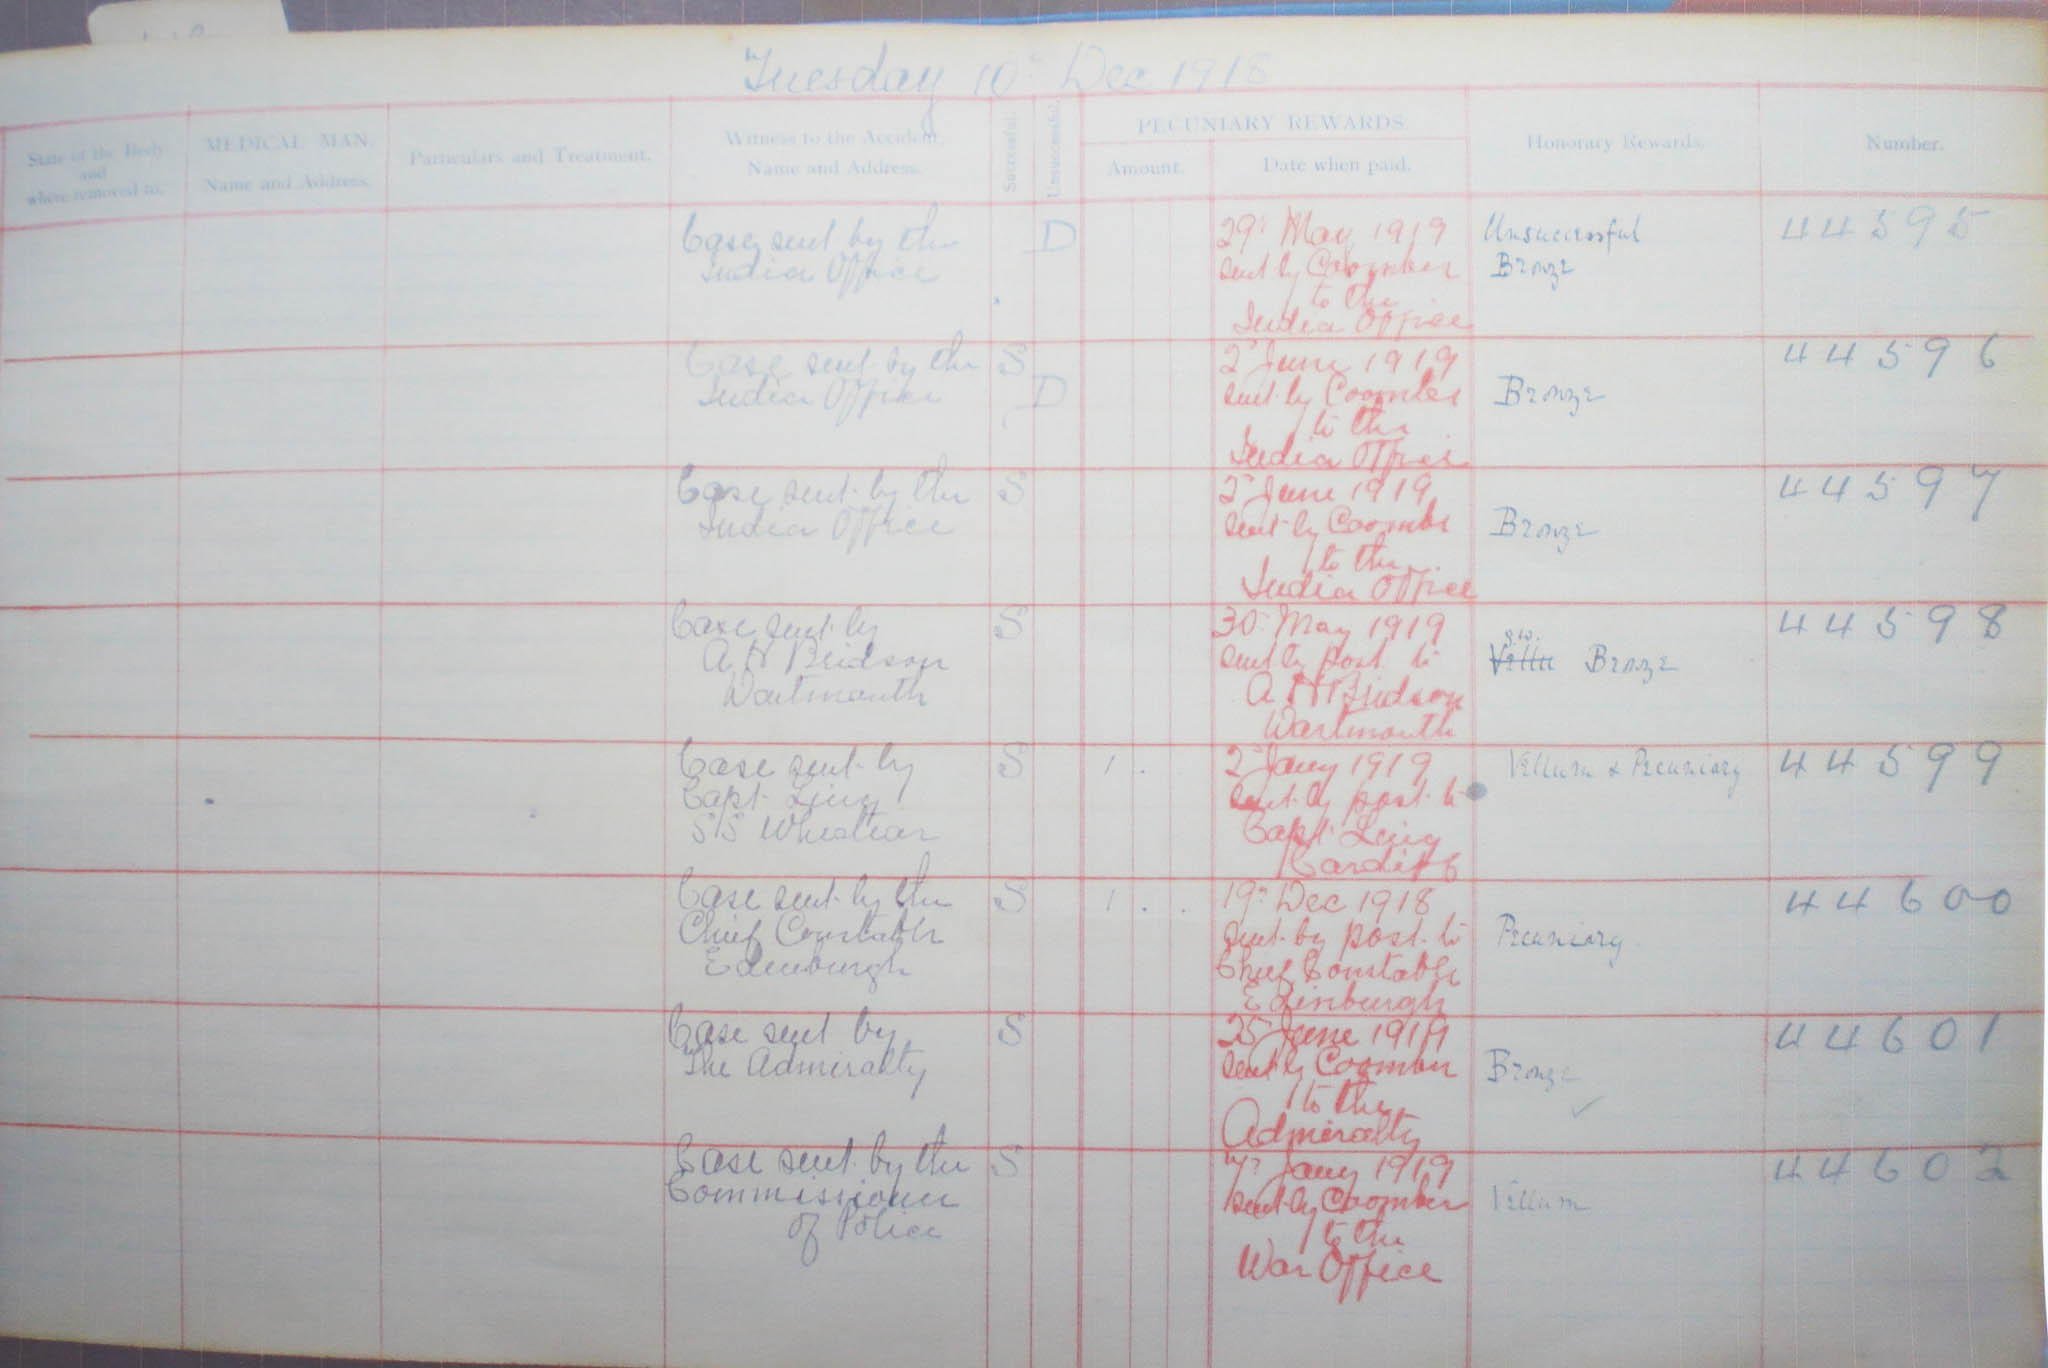 Tuesday 10th Dec 1918
State of the Body and where removed to.
MEDICAL MAN. Name and Address.
Particulars and Treatment.
Witness to the Accident. Name and Address.
Successful.
Unsuccessful.
PECUNIARY REWARDS.
Amount.
Date when paid.
Honorary Rewards.
Number.
Case sent by the
India Office
D
29th May 1919
sent by Coomber
to the
India Office
Unsuccessful
Bronze
44595
Case sent by the
India Office
S
D
2d June 1919
sent by Coomber
to the
India Office
Bronze
44596
Case sent by the
India Office
S
2d June 1919
sent by Coomber
to the
India Office
Bronze
44597
Case sent by
A H Bridson
Dartmouth
S
30th May 1919
sent by post to
A H Bridson
Dartmouth
Bronze
44598
Case sent by
Capt.
S/S Wheatear
S
1 .
2d Jany 1919
sent by post to
Capt.
Cardiff
Vellum & Pecuniary
44599
Case sent by the
Chief Constable
Edinburgh
S
1 . .
19th Dec 1918
sent by post to
Chief Constable
Edinburgh
Pecuniary
44600
Case sent by
The Admiralty
S
25th June 1919
sent by Coomber
to the
Admiralty
Bronze
44601
Case sent by the
Commissioner
of Police
S
7th Jany 1919
sent by Coomber
to the
War Office
Vellum
44602